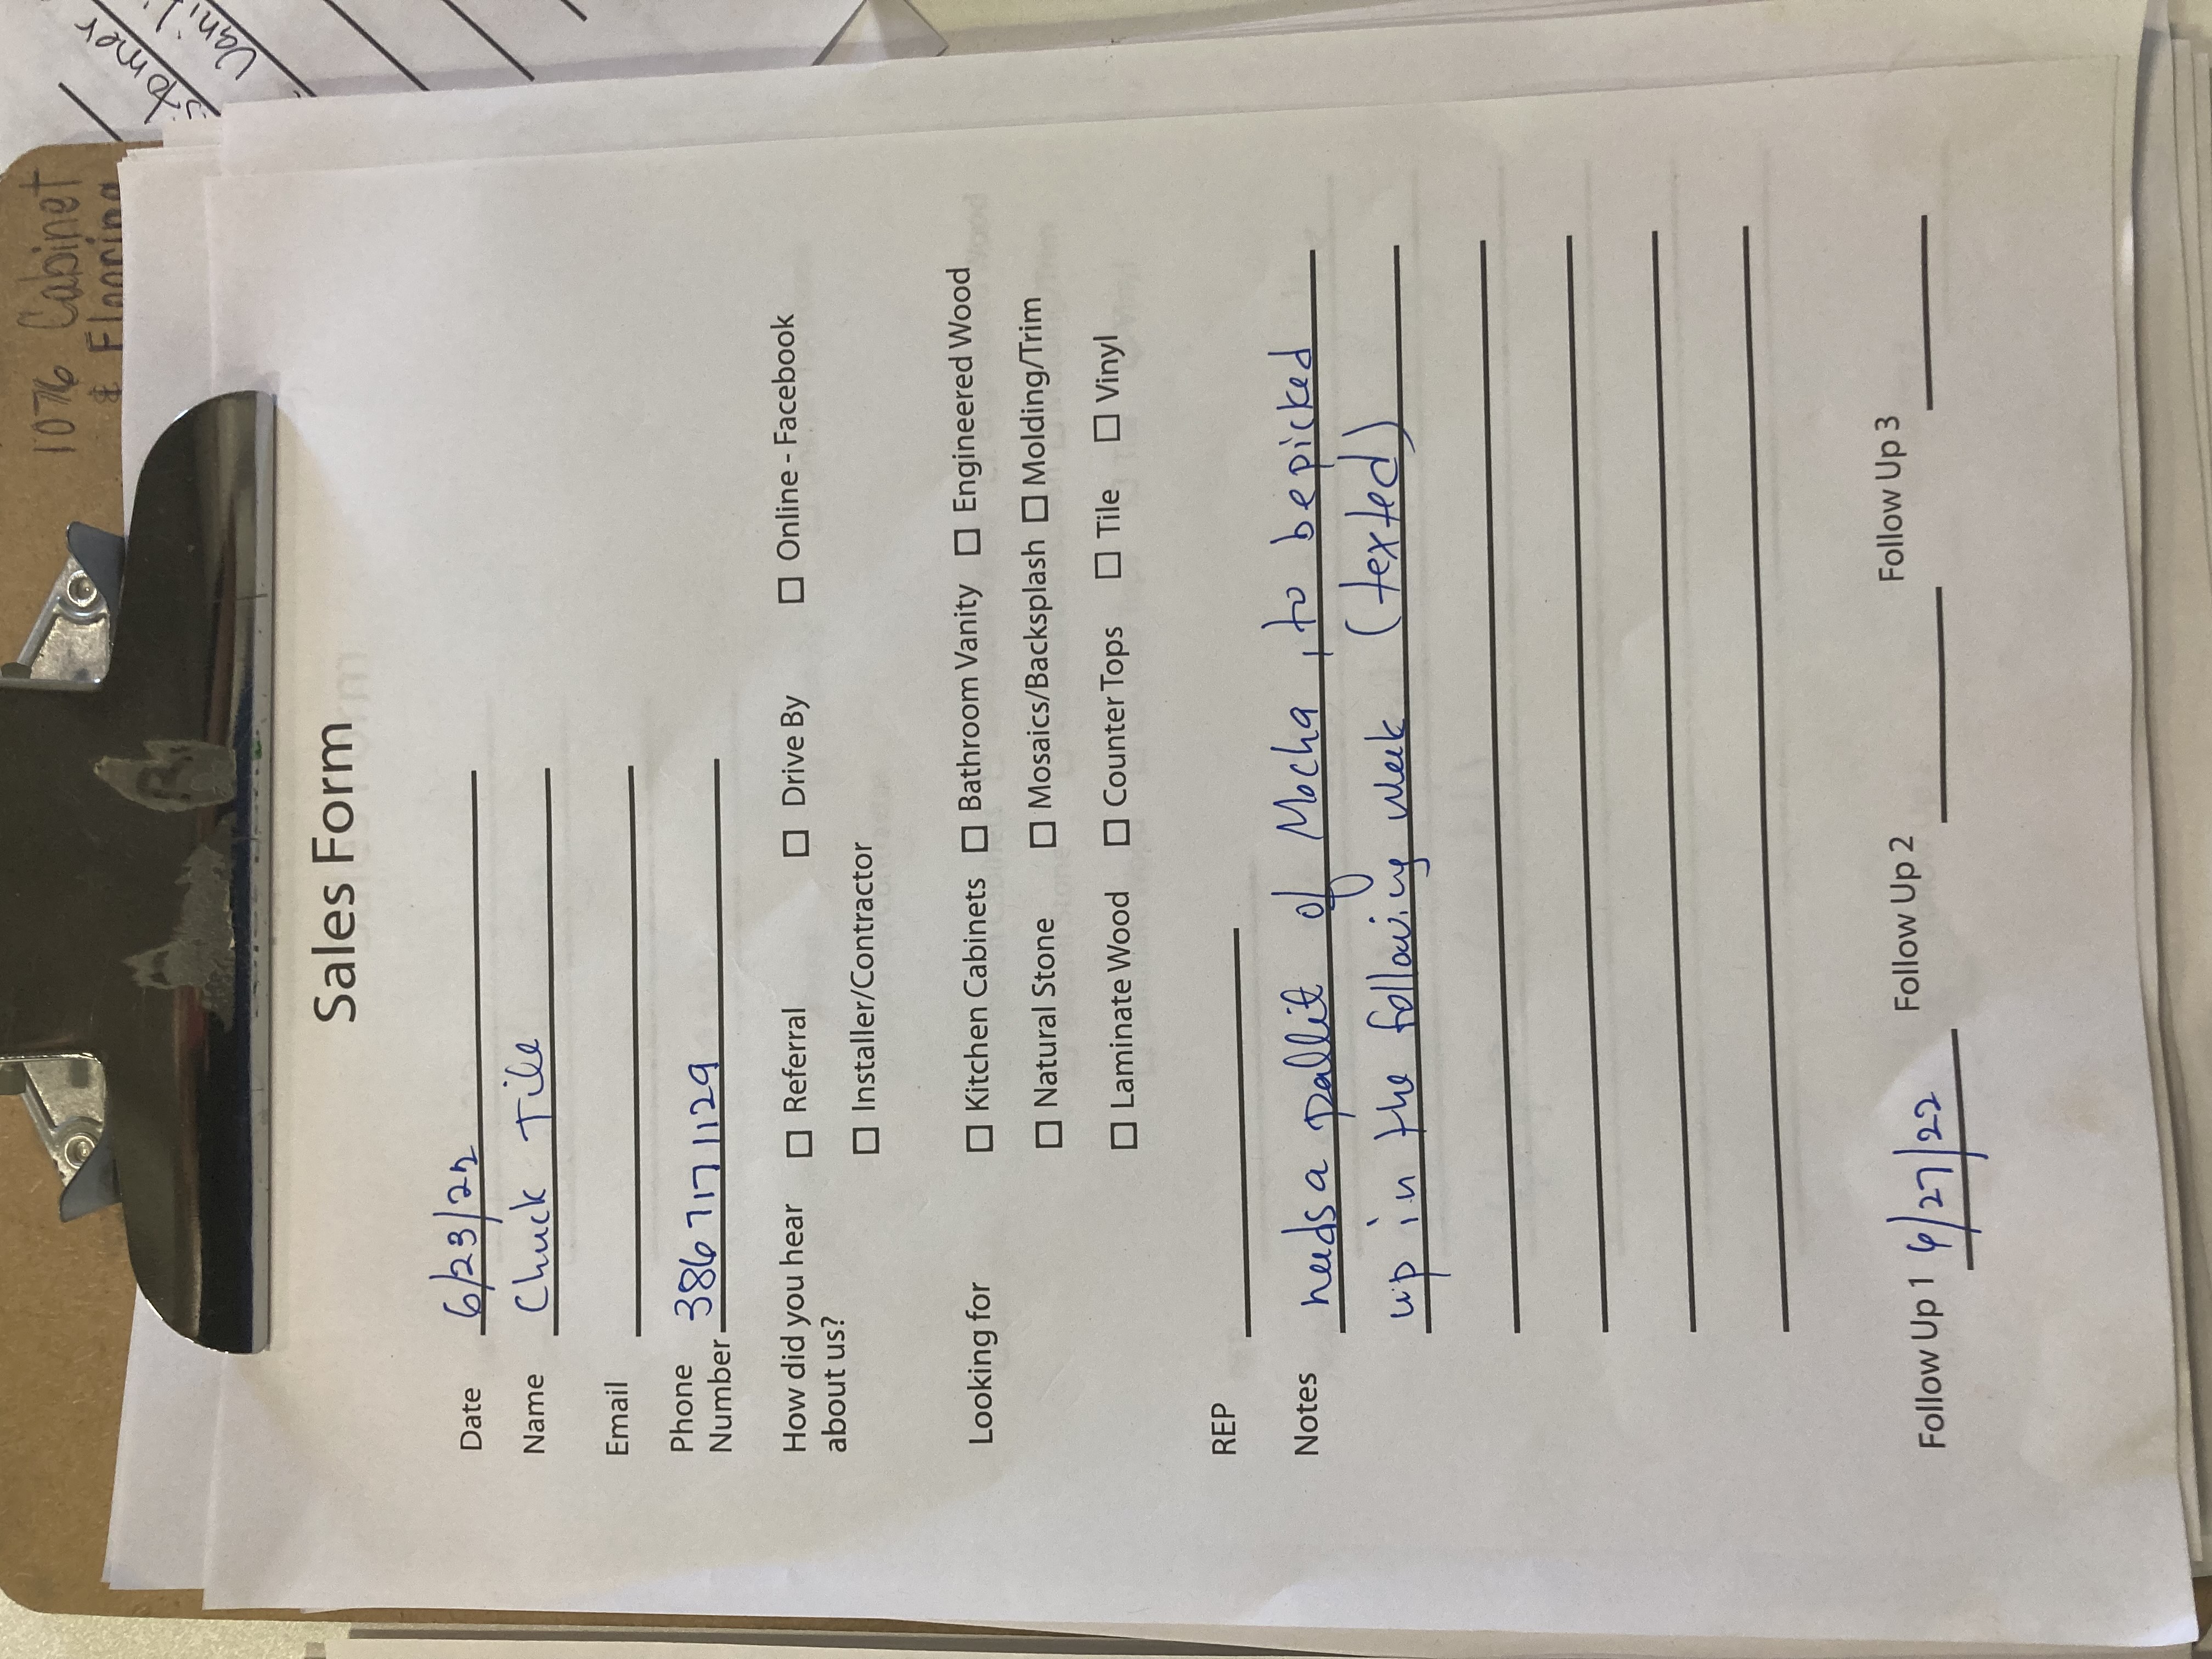 1076 Cabinet
& Flooring
Sales Form
Date 6/23/22
Name Chuck Tile
Email
Phone
Number 386 717 1129
How did you hear ☐ Referral ☐ Drive By ☐ Online - Facebook
about us? ☐ Installer/Contractor
Looking for ☐ Kitchen Cabinets ☐ Bathroom Vanity ☐ Engineered Wood
☐ Natural Stone ☐ Mosaics/Backsplash ☐ Molding/Trim
☐ Laminate Wood ☐ Counter Tops ☐ Tile ☐ Vinyl
REP
Notes needs a pallet of Mocha, to be picked
up in the following week (texted)
Follow Up 1 6/27/22 Follow Up 2 Follow Up 3